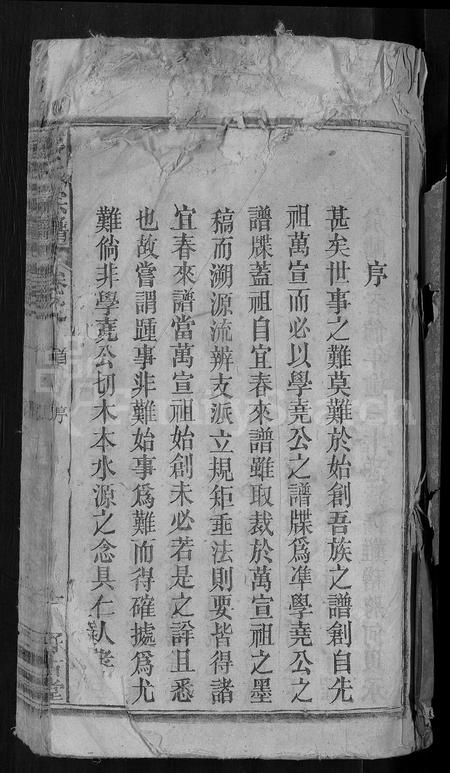 序
甚矣世事之難莫難於始創吾族之譜創自先
祖萬宣而必以學堯公之譜牒爲準學堯公之
譜牒蓋祖自宜春來譜雖取裁於萬宣祖之墨
稿而溯源流辨支派立規矩垂法則要皆得諸
宜春來譜當萬宣祖始創未必若是之詳且悉
也故嘗謂踵事非難始事爲難而得確據爲尤
難倘非學堯公切木本水源之念具仁人孝
宗譜 卷之
首序